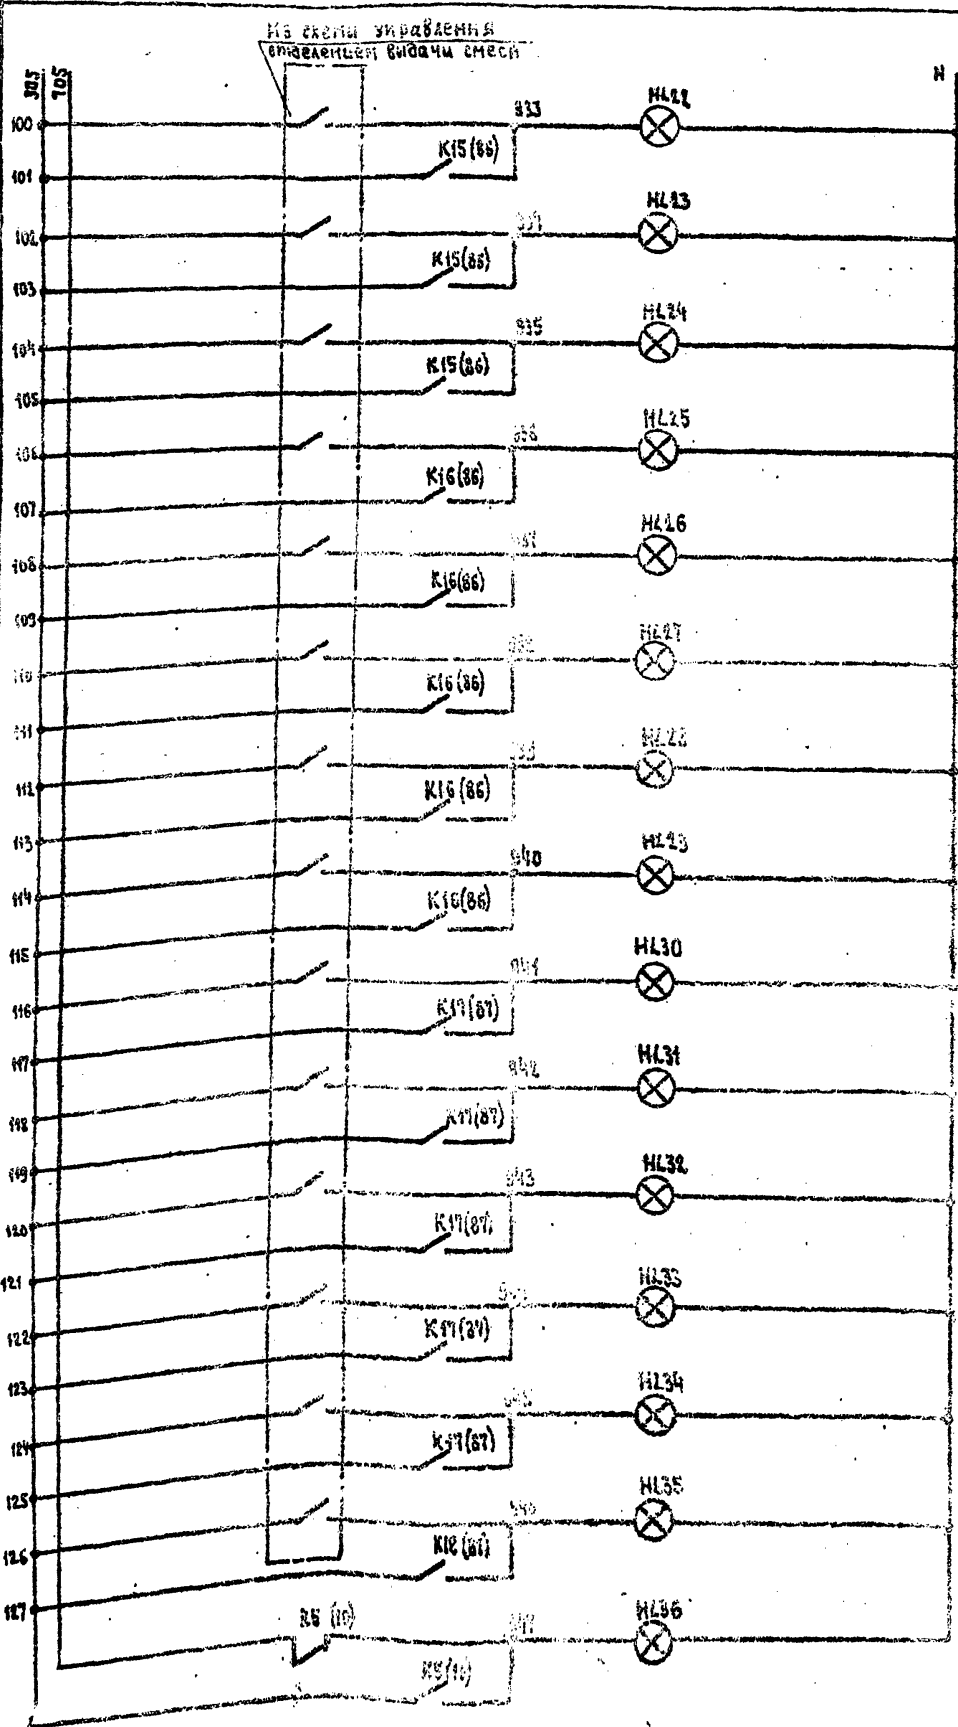 Из схемы управления
отделением выдачи смеси
305
705
N
100
933
HL22
K15(86)
101
102
HL23
K15(86)
103
104
935
HL24
K15(86)
105
106
936
HL25
K16(86)
107
108
937
HL26
K16(86)
109
110
HL27
K16(86)
111
112
HL28
K16(86)
113
114
940
HL29
K16(86)
115
116
941
HL30
K17(87)
117
118
942
HL31
K17(87)
119
120
943
HL32
K17(87)
121
122
HL33
K17(87)
123
124
HL34
K17(87)
125
126
HL35
K18(87)
127
947
HL36